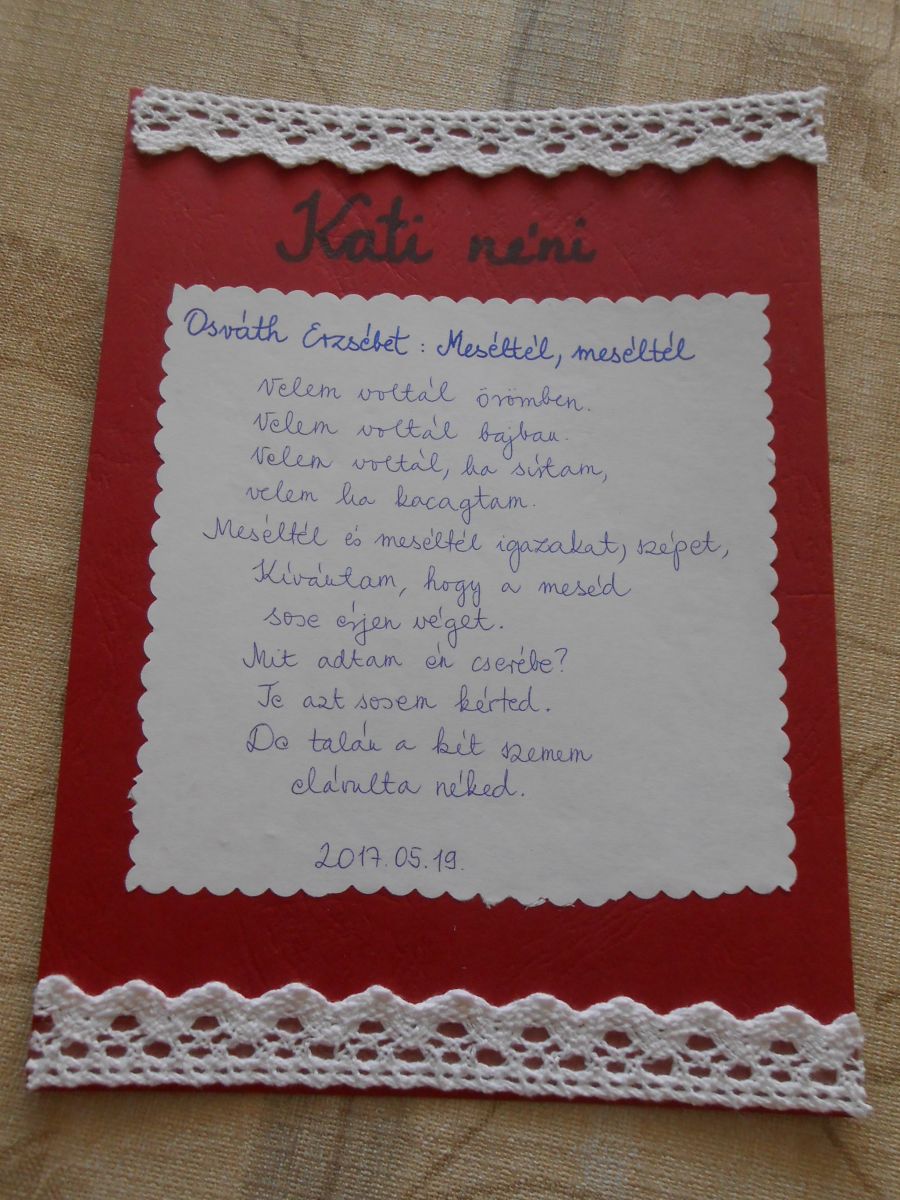 Kati néni
Osváth Erzsébet : Meséltél, meséltél
Velem voltál örömben.
Velem voltál bajban.
Velem voltál, ha sírtam,
velem ha kacagtam.
Meséltél és meséltél igazakat, szépet,
Kívántam, hogy a meséd
sose érjen véget.
Mit adtam én cserébe?
Te azt sosem kérted.
De talán a két szemem
elárulta néked.
2017.05.19.